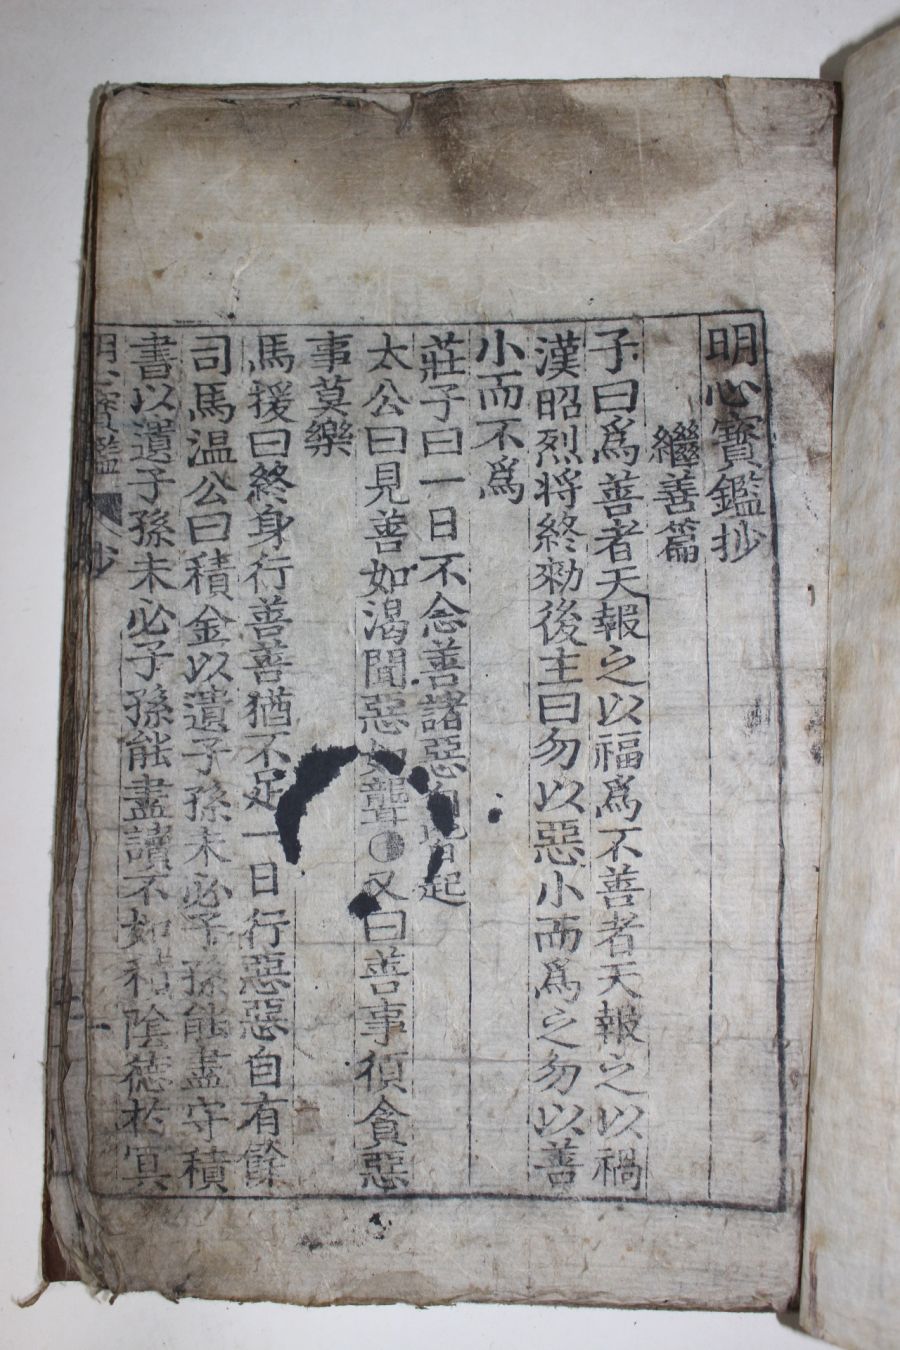 明心寶鑑抄
繼善篇
子曰爲善者天報之以福爲不善者天報之以禍
漢昭烈將終勑後主曰勿以惡小而爲之勿以善
小而不爲
莊子曰一日不念善諸惡自皆起
太公曰見善如渴聞惡如聾〇又曰善事須貪惡
事莫樂
馬援曰終身行善善猶不足一日行惡惡自有餘
司馬温公曰積金以遺子孫未必子孫能盡守積
書以遺子孫未必子孫能盡讀不如積陰德於冥
明心寶鑑抄